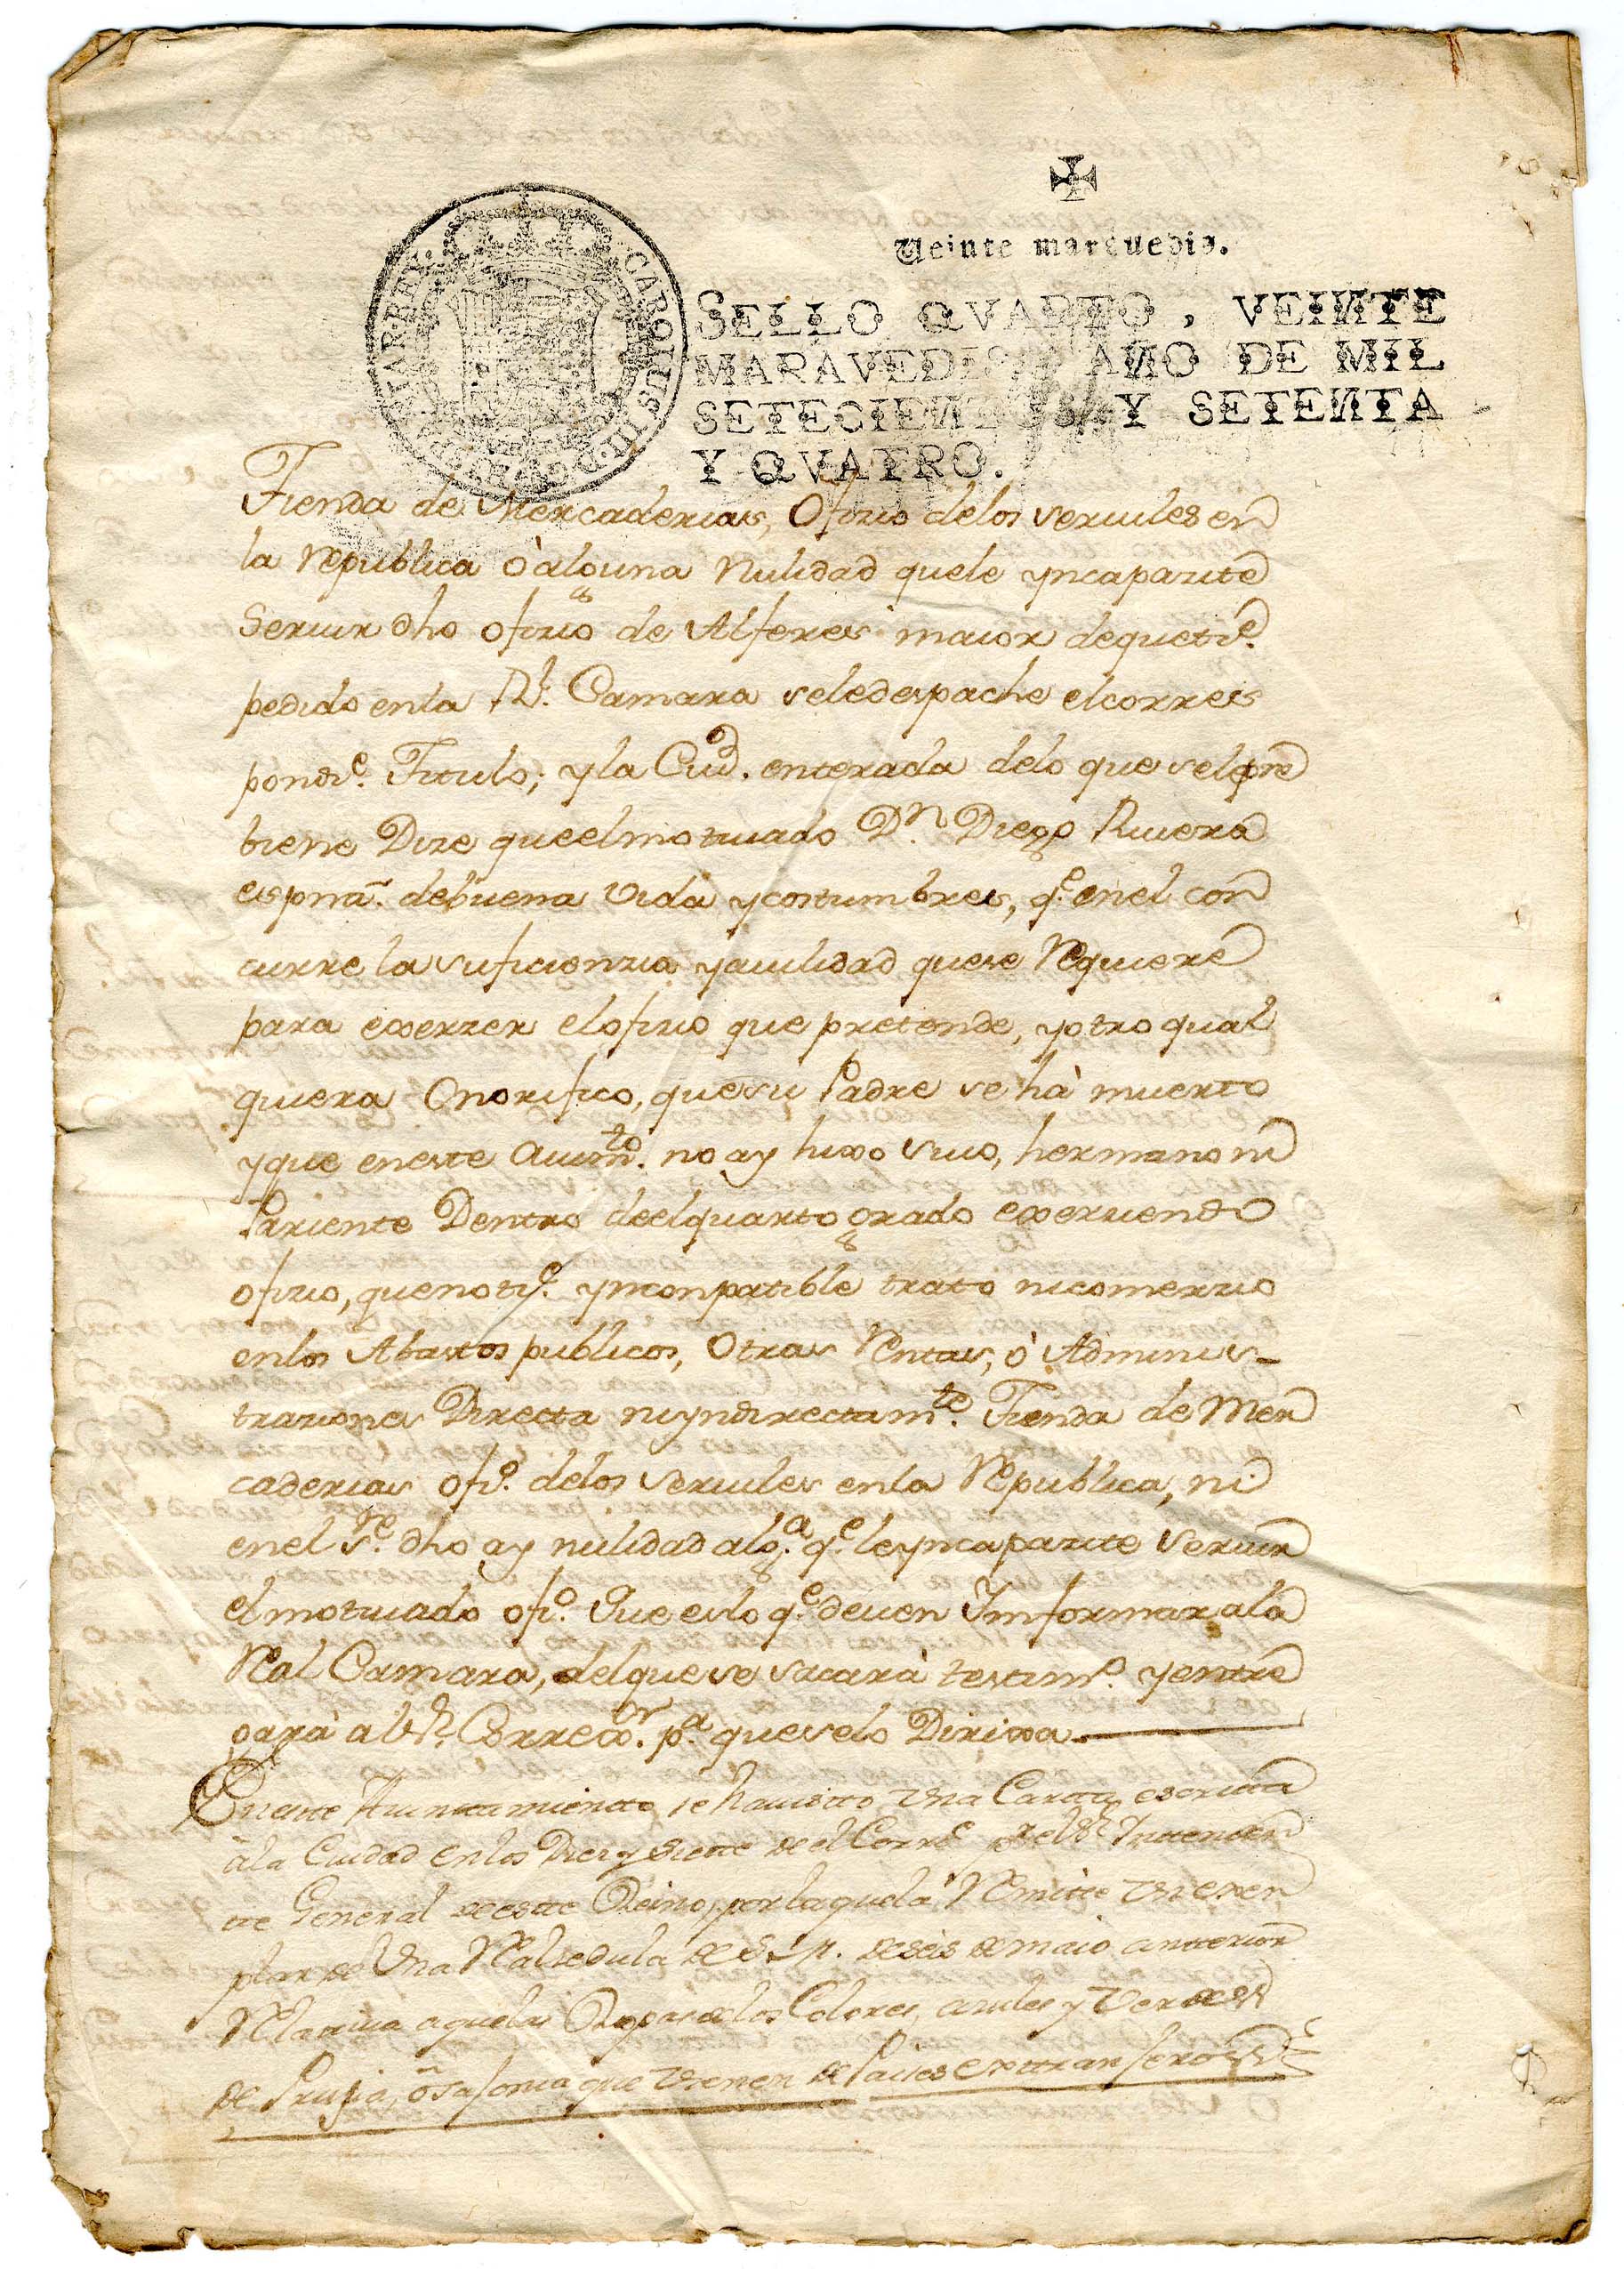 Veinte maravedis.
CAROLUS III D G HISPANIAR REX
SELLO QVARTO, VEINTE
MARAVEDIS, AÑO DE MIL
SETECIENTOS Y SETENTA
Y QVATRO.
Tienda de Mercaderias, Ofizio delos serviles en
la Republica ò alguna Nulidad quele yncapazite
Servir dho ofizio de Alferes maior dequetie.
pedido enla Rl. Camara seledespache elcorres
pondte. Titulo; yla Ciud. enterada delo que selepre
biene Dize queelmotivado Dn. Diego Rivera
es prna. debuena Vida ycostumbres, qe. enel con
curre la suficienzia yavilidad quese Requiere
para exerzer elofizio que pretende, yotro qual
quiera Onorifico, quesu Padre se hà muerto
yque eneste Aiuntmto. no ay hixo suio, hermano ni
Pariente Dentro deelquarto grado exerziendo
ofizio, quenotie. ynconpatible trato nicomerzio
enlos Abastos publicos, Otras Rentas, ò Adminis-
traziones Directa niyndirectamte. Tienda de Mer
caderias ofizo. delos serviles enla Republica, ni
enel sre. dho ay nulidad alga. qe. leyncapazite Servir
elmotivado ofizo. Que eslo qe. deven Ymformar ala
Real Camara, delquese sacarà testimo. yentre
garà alSr. Correxor. pa. queselo Dirixa
Eneste Aiuntamiento se havisto Vna Carta escrita
àla Ciudad enlos Diez y Siette de el Corrte por el Sr. Yntenden
te General deeste Reino, porlaquela Remite Vn exem
plar de Vna Realsedula de S. M. deseis de maio antterior
Relativa aquelas Ropas delos Colores, azules y Verdes
de Prusia, ò Safonia que vienen de Paises exttranferos